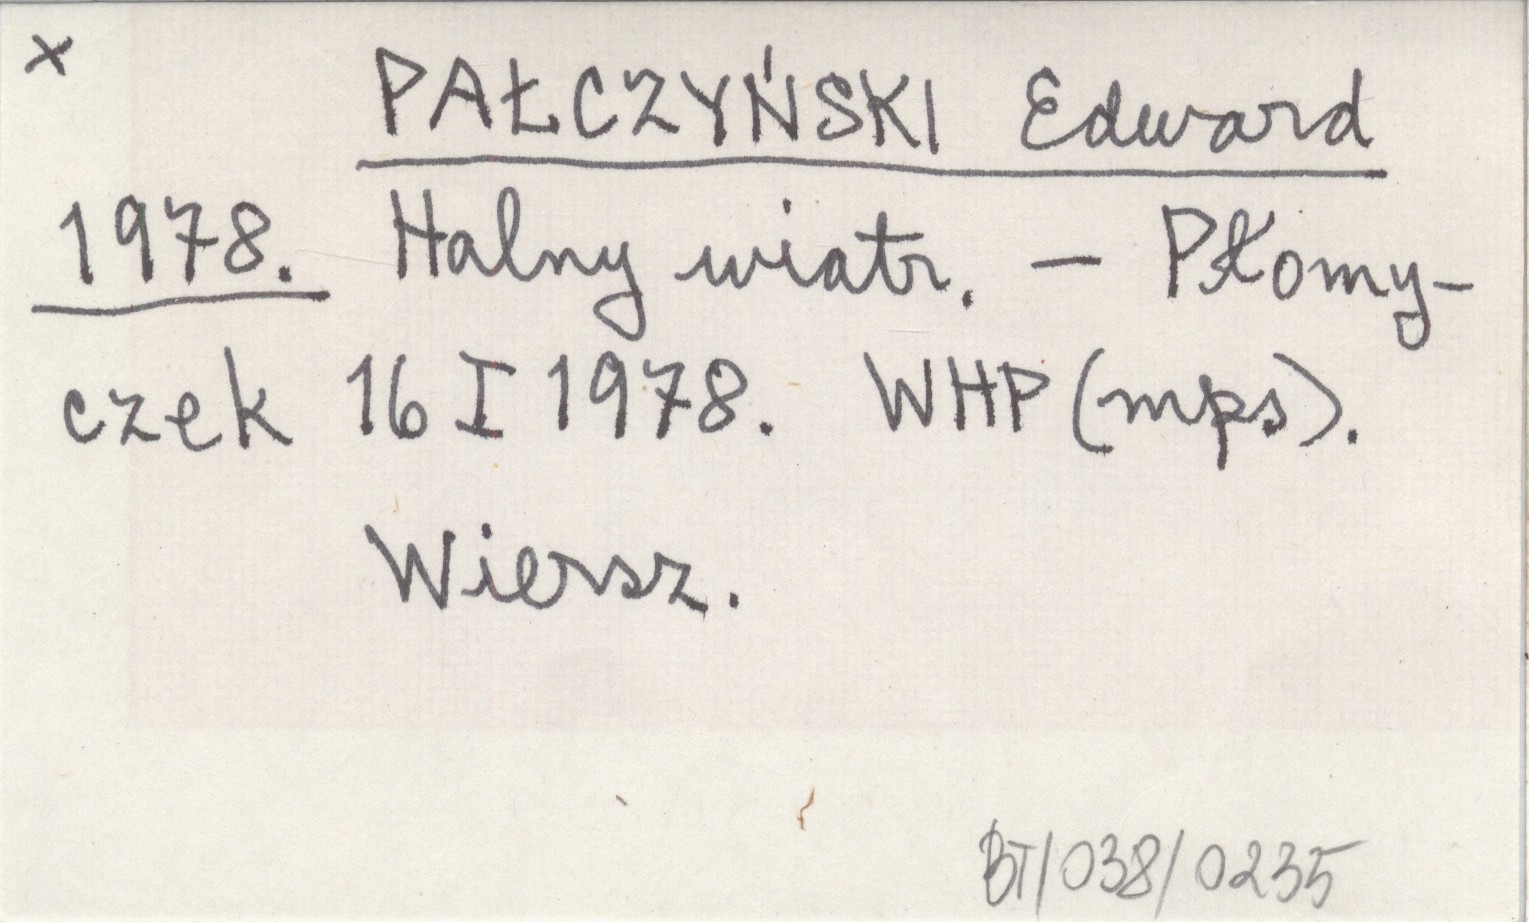 x
PAŁCZYŃSKI Edward
1978. Halny wiatr. – Płomy-
czek 16 I 1978. WHP (mps).
Wiersz.
BT/038/0235